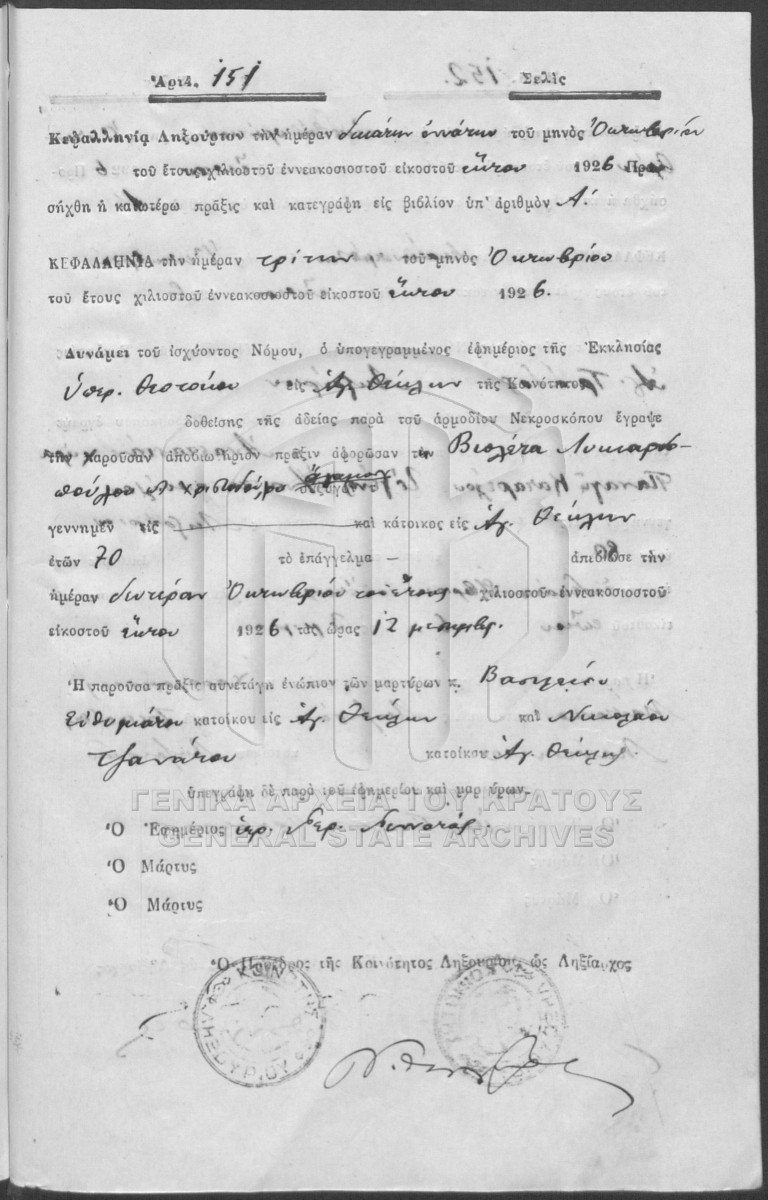 Ἀριθ. 151 Σελὶς
Κεφαλληνία Ληξούριον τὴν ἡμέραν δεκάτην ἐννάτην τοῦ μηνὸς Ὀκτωβρίου
τοῦ ἔτους χιλιοστοῦ ἐννεακοσιοστοῦ εἰκοστοῦ ἕκτου 1926 Προ
σήχθη ἡ κατωτέρω πρᾶξις καὶ κατεγράφη εἰς βιβλίον ὑπ' ἀριθμὸν Α.'
ΚΕΦΑΛΛΗΝΙΑ τὴν ἡμέραν τρίτην τοῦ μηνὸς Ὀκτωβρίου
τοῦ ἔτους χιλιοστοῦ ἐννεακοσιοστοῦ εἰκοστοῦ ἕκτου 1926.
Δυνάμει τοῦ ἰσχύοντος Νόμου, ὁ ὑπογεγραμμένος ἐφημέριος τῆς Ἐκκλησίας
Ὑπερ. Θεοτόκου εἰς Ἁγ. Θέκλην τῆς Κοινότητος
δοθείσης τῆς ἀδείας παρὰ τοῦ ἁρμοδίου Νεκροσκόπου ἔγραψε
τὴν παροῦσαν ἀποδιωτήριον πρᾶξιν ἀφορῶσαν τὴν Βιολέτα Λυκιαρδο-
πούλου Χριστοδούλου ἄγαμος
γεννημεν εἰς καὶ κάτοικος εἰς Ἁγ. Θέκλην
ἐτῶν 70 τὸ ἐπάγγελμα — ἀπεβίωσε τὴν
ἡμέραν δευτέραν Ὀκτωβρίου τοῦ ἔτους χιλιοστοῦ ἐννεακοσιοστοῦ
εἰκοστοῦ ἕκτου 1926, τὰς ὥρας 12 μεσημβρ.
Ἡ παροῦσα πρᾶξις συνετάγη ἐνώπιον τῶν μαρτύρων κ. Βασιλείου
Εὐθυμιάτου κατοίκου εἰς Ἁγ. Θέκλην καὶ Νικολάου
Τζανάτου κατοίκου Ἁγ. Θέκλης.
ὑπεγράφη δὲ παρὰ τοῦ ἐφημερίου καὶ μαρτύρων.
ΓΕΝΙΚΑ ΑΡΧΕΙΑ ΤΟΥ ΚΡΑΤΟΥΣ
Ὁ Ἐφημέριος ἱερ.
GENERAL STATE ARCHIVES
Ὁ Μάρτυς
Ὁ Μάρτυς
Ὁ Πρόεδρος τῆς Κοινότητος Ληξουρίου, ὡς Ληξίαρχος
ΚΟΙΝΟΤΗΣ ΛΗΞΟΥΡΙΟΥ